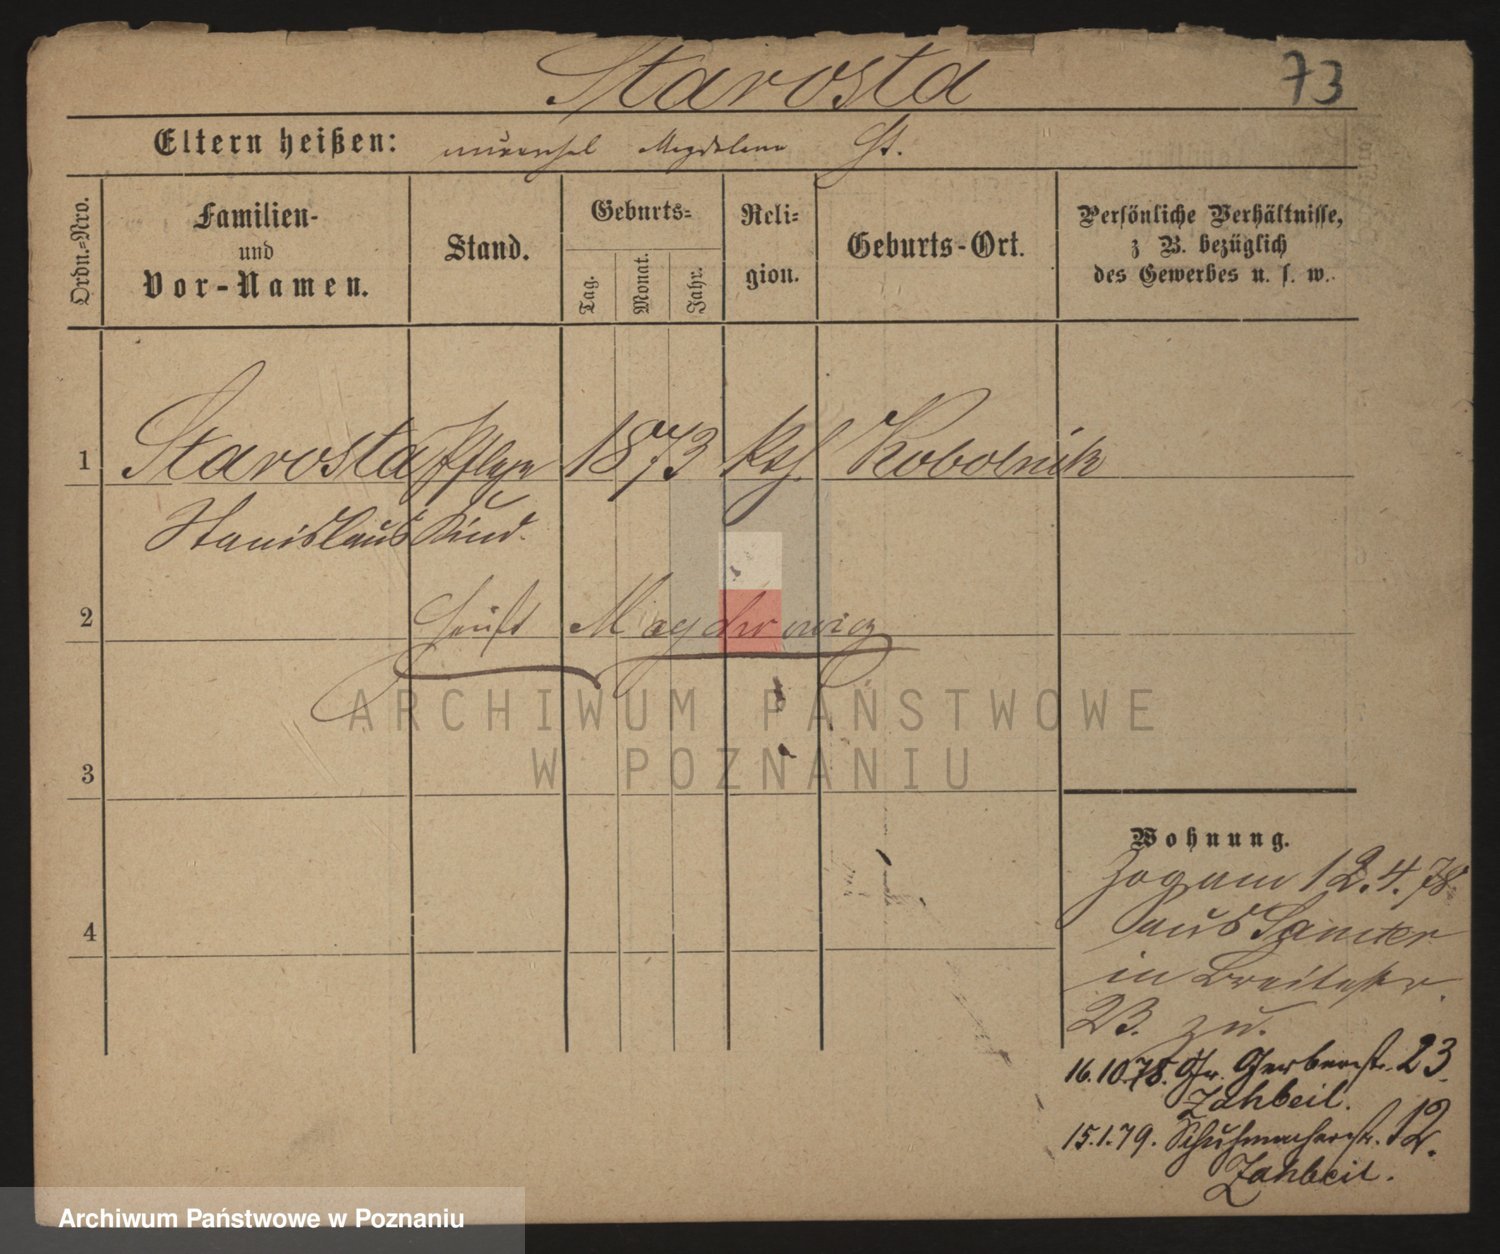 Starosta 73
Eltern heißen: unverehel Magdalena St.
Ordn.-Nro.
Familien-
und
Vor-Namen.
Stand.
Geburts-
Tag.
Monat.
Jahr.
Reli-
gion.
Geburts-Ort.
Persönliche Verhältnisse,
z B. bezüglich
des Gewerbes u. s. w.
1 Starosta Pflege 1873 kth. Kobolnik
Stanislaus Kind.
heißt
2
3
4
Wohnung.
Zog am 12.4.78
aus Samter
in Breitestr.
23. zu.
16.10.78. Gr. Gerberstr. 23.
Zahbeil.
15.1.79. Schuhmacherstr. 12.
Zahbeil.
ARCHIWUM PAŃSTWOWE
W POZNANIU
Archiwum Państwowe w Poznaniu